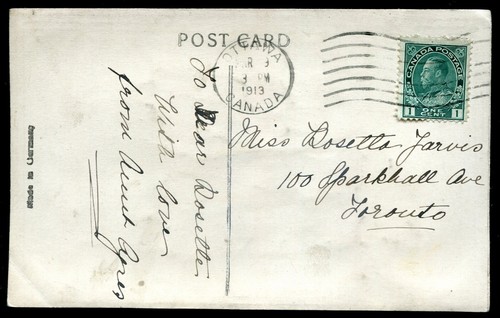 POST CARD
OTTAWA
3 PM
1913
CANADA
CANADA POSTAGE
1 ONE CENT 1
To Dear Rosette
With love
from Aunt Agnes
Miss Rosetta Jarvis
100 Sparkhall Ave
Toronto
Made in Germany